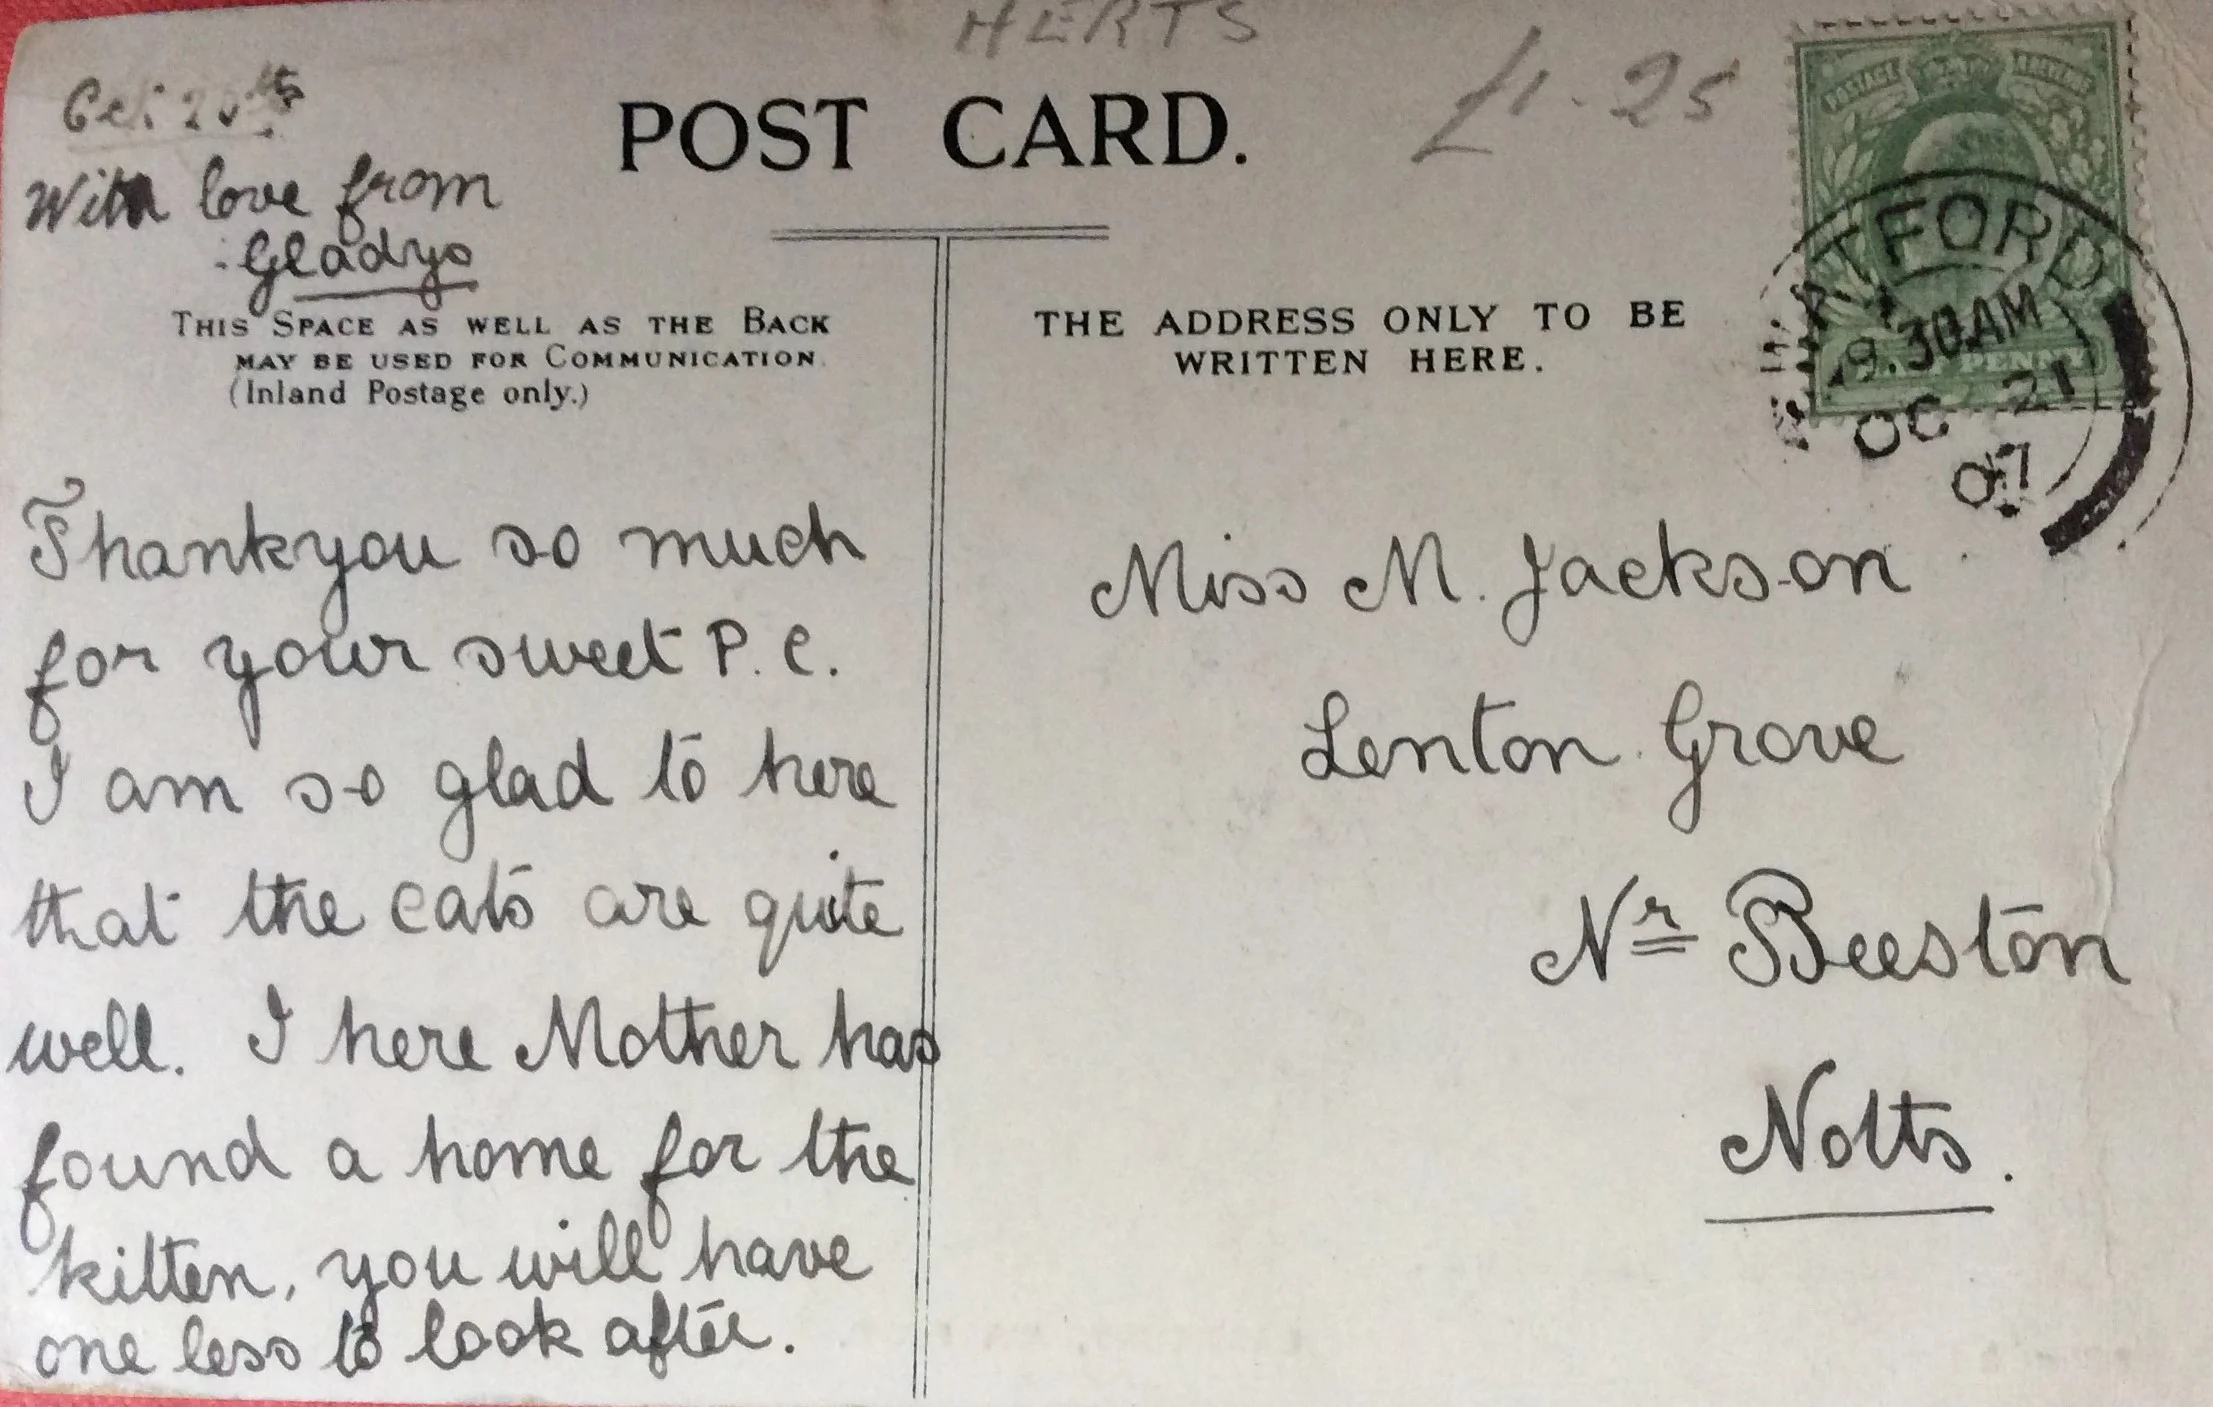 HERTS
£1-25
Oct. 20th
With love from
Gladys
POST CARD.
THIS SPACE AS WELL AS THE BACK
MAY BE USED FOR COMMUNICATION.
(Inland Postage only.)
THE ADDRESS ONLY TO BE
WRITTEN HERE.
POSTAGE REVENUE
HERTFORD
9.30AM
OC 21
07
PENNY
Thankyou so much
for your sweet P.C.
I am so glad to here
that the cats are quite
well. I here Mother has
found a home for the
kitten, you will have
one less to look after.
Miss M. Jackson
Lenton Grove
Nr Beeston
Notts.